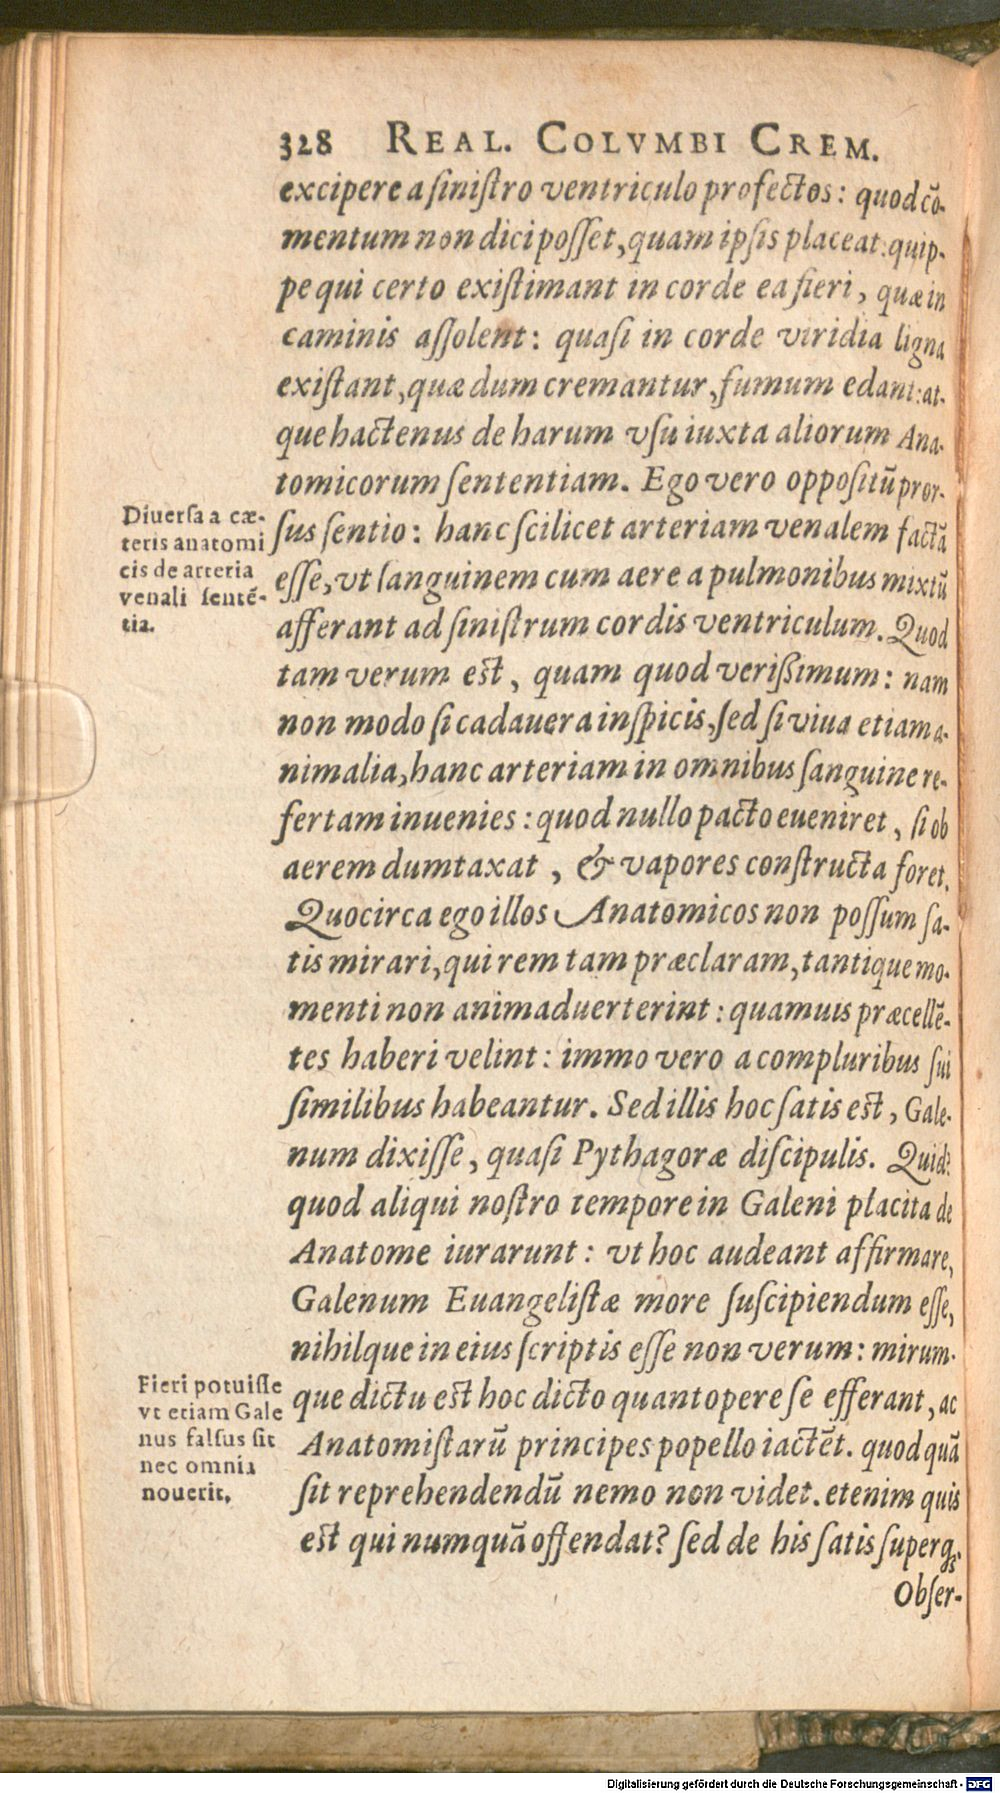 328 REAL. COLVMBI CREM.
excipere a siniſtro ventriculo profectos: quod cõ-
mentum non dici poſſet, quam ipſis placeat: quip-
pe qui certo exiſtimant in corde ea fieri, quæ in
caminis aſſolent: quaſi in corde viridia ligna
exiſtant, quæ dum cremantur, fumum edant: at-
que hactenus de harum vſu iuxta aliorum Ana-
tomicorum ſententiam. Ego vero oppoſitũ pror-
ſus ſentio: hanc ſcilicet arteriam venalem factã
eſſe, vt ſanguinem cum aere a pulmonibus mixtũ
afferant ad ſiniſtrum cordis ventriculum. Quod
tam verum eſt, quam quod verißimum: nam
non modo ſi cadauera inſpicis, ſed ſi viua etiam a-
nimalia, hanc arteriam in omnibus ſanguine re-
fertam inuenies: quod nullo pacto eueniret, ſi ob
aerem dumtaxat, & vapores conſtructa foret.
Quocirca ego illos Anatomicos non poſſum ſa-
tis mirari, qui rem tam præclaram, tantique mo-
menti non animaduerterint: quamuis præcellẽ-
tes haberi velint: immo vero a compluribus ſui
ſimilibus habeantur. Sed illis hoc ſatis eſt, Gale-
num dixiſſe, quaſi Pythagoræ diſcipulis. Quid?
quod aliqui noſtro tempore in Galeni placita de
Anatome iurarunt: vt hoc audeant affirmare,
Galenum Euangeliſtæ more ſuſcipiendum eſſe,
nihilque in eius ſcriptis eſſe non verum: mirum-
que dictu eſt hoc dicto quantopere ſe efferant, ac
Anatomiſtarũ principes popello iactẽt. quod quã
ſit reprehendendũ nemo non videt. etenim quis
eſt qui numquã offendat? ſed de his ſatis ſuperq́;.
Obſer-
Diuerſa a cæ-
teris anatomi
cis de arteria
venali ſentẽ-
tia.
Fieri potuiſſe
vt etiam Gale
nus falſus ſit
nec omnia
nouerit.
Digitalisierung gefördert durch die Deutsche Forschungsgemeinschaft - DFG